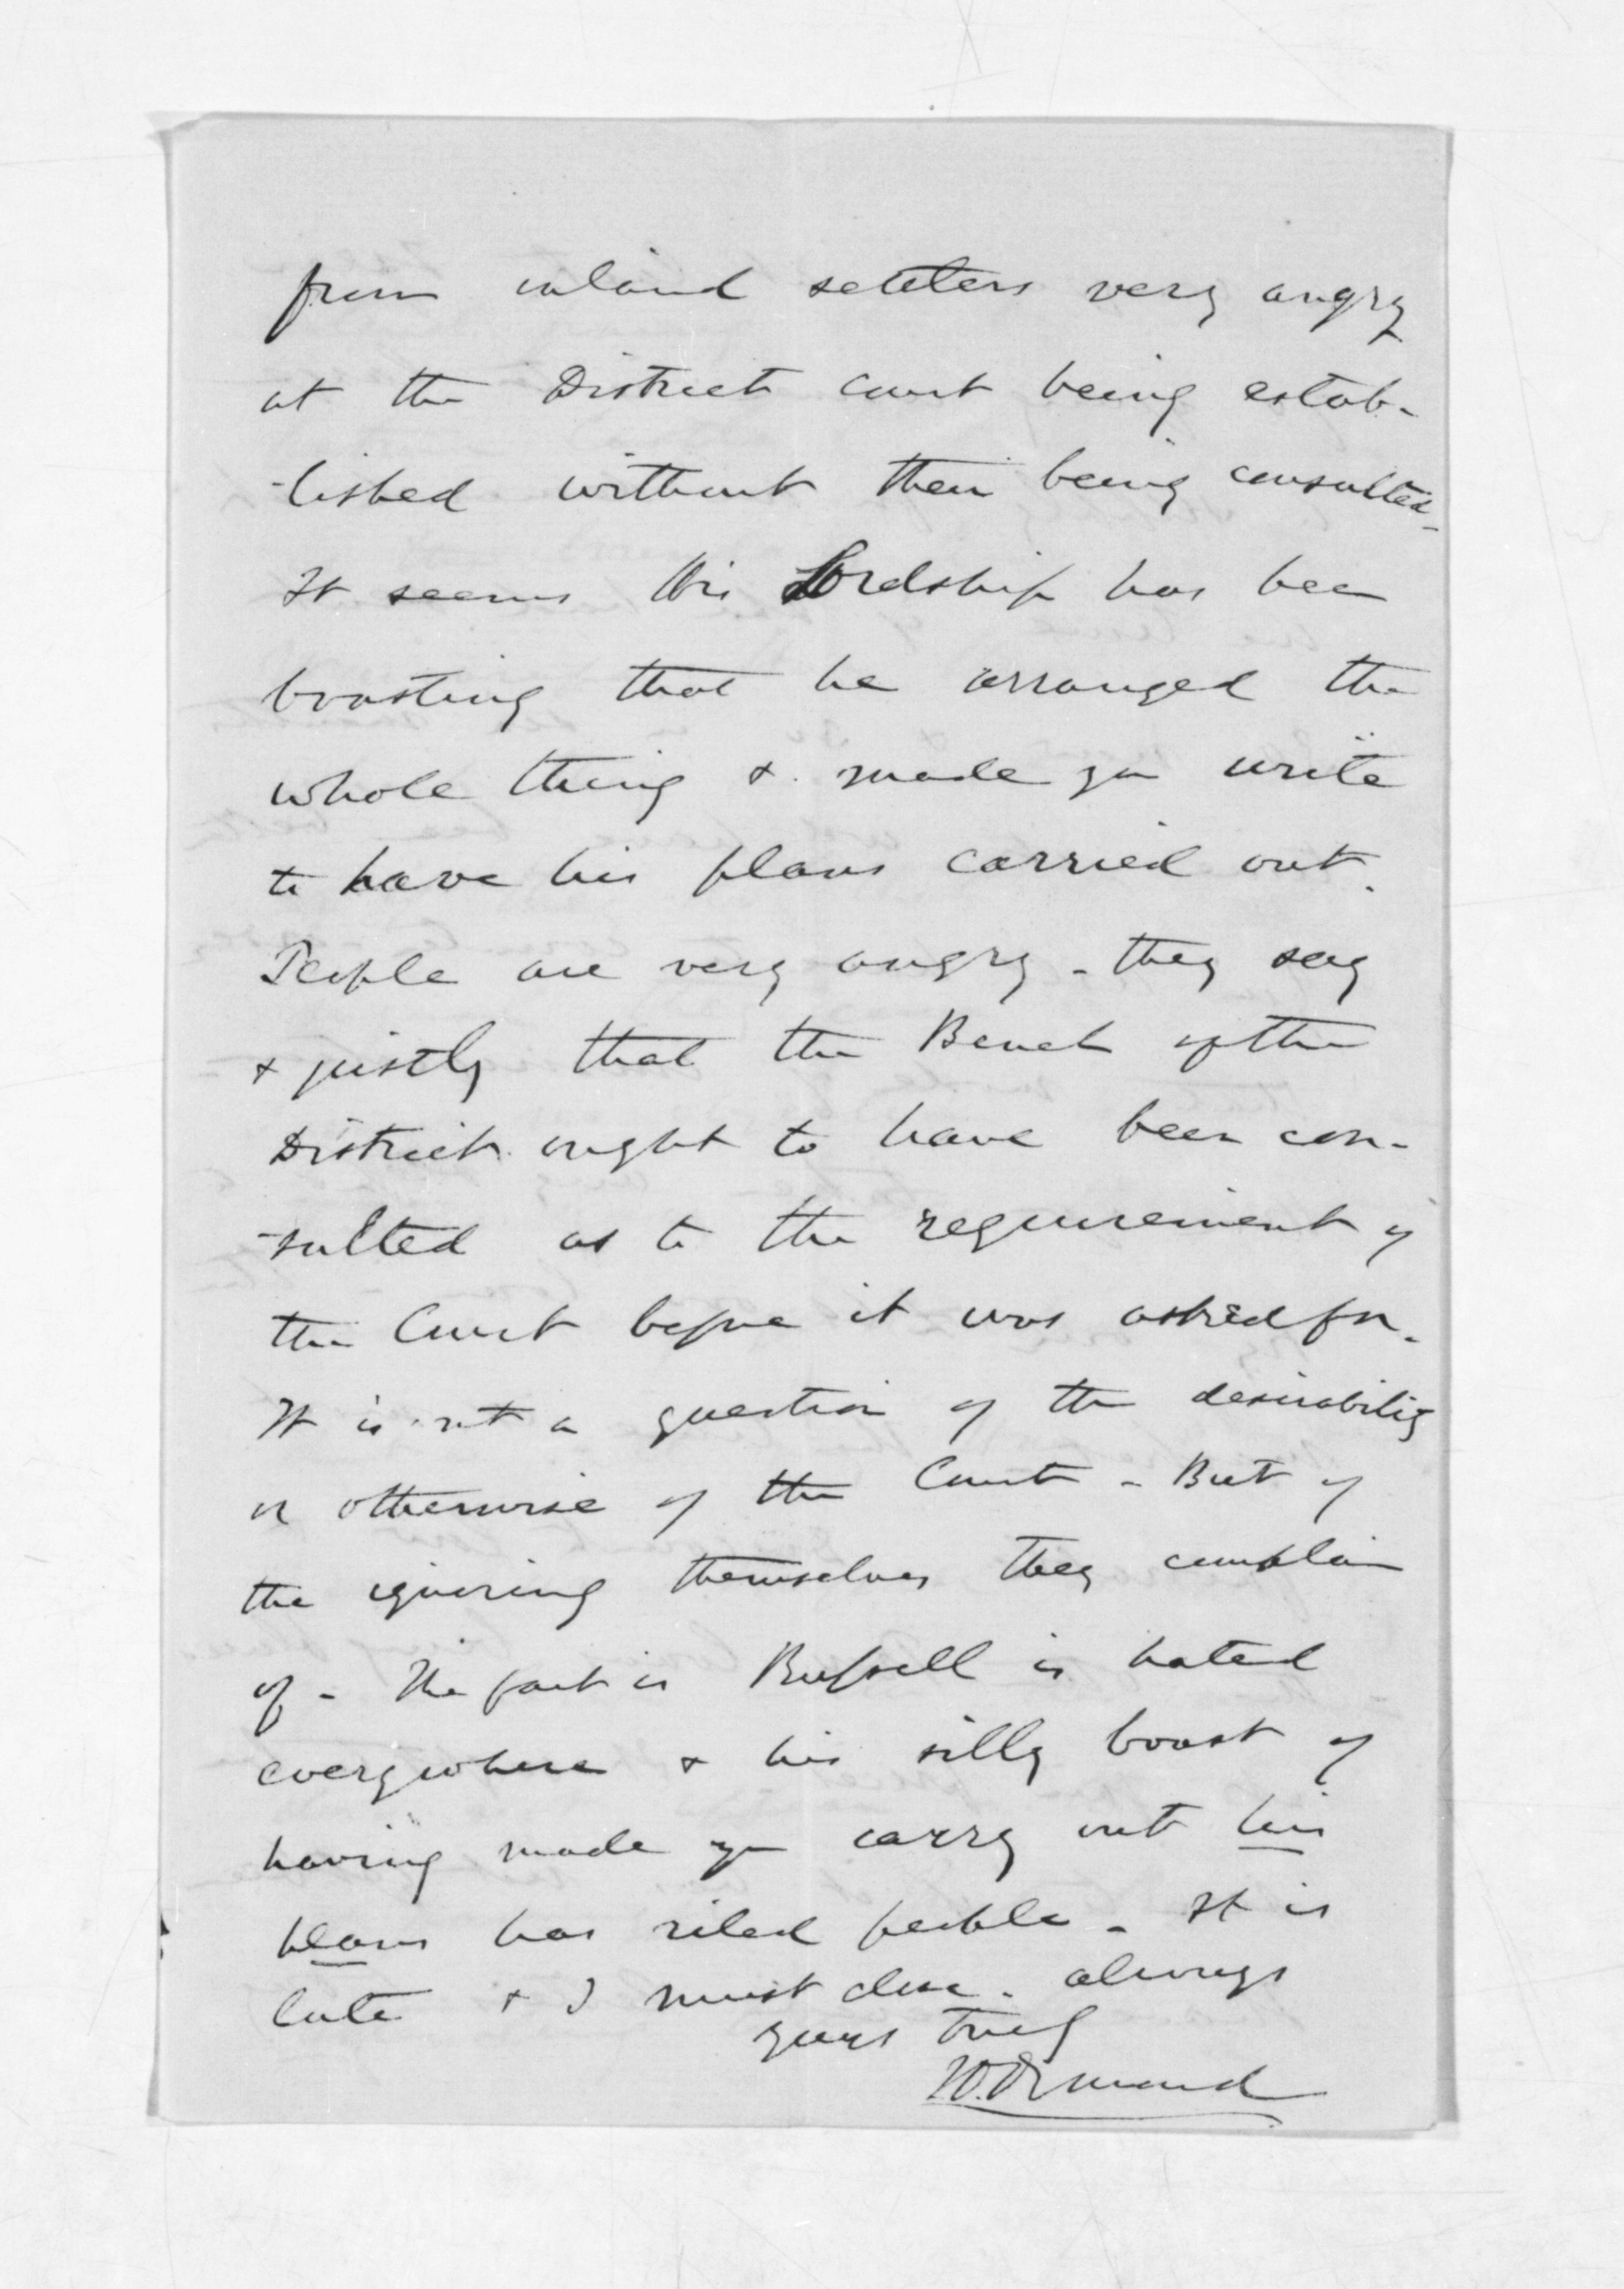 from inland settlers very angry
at the District Court being estab-
-lished without their being consulted -
It seems His Lordship has been
boasting that he arranged the
whole thing & made you write
to have his plans carried out.
People are very angry - they say
& justly that the Bench of the
District ought to have been con-
-sulted as to the requirement of
the Court before it was asked for.
It is not a question of the desirability
or otherwise of the Court - But of
the ignoring themselves they complain
of - The fact is Russell is hated
everywhere & his silly boast of
having made you carry out his
plans has riled people - It is
late & I must close. always
yours truly
J.D. Ormond